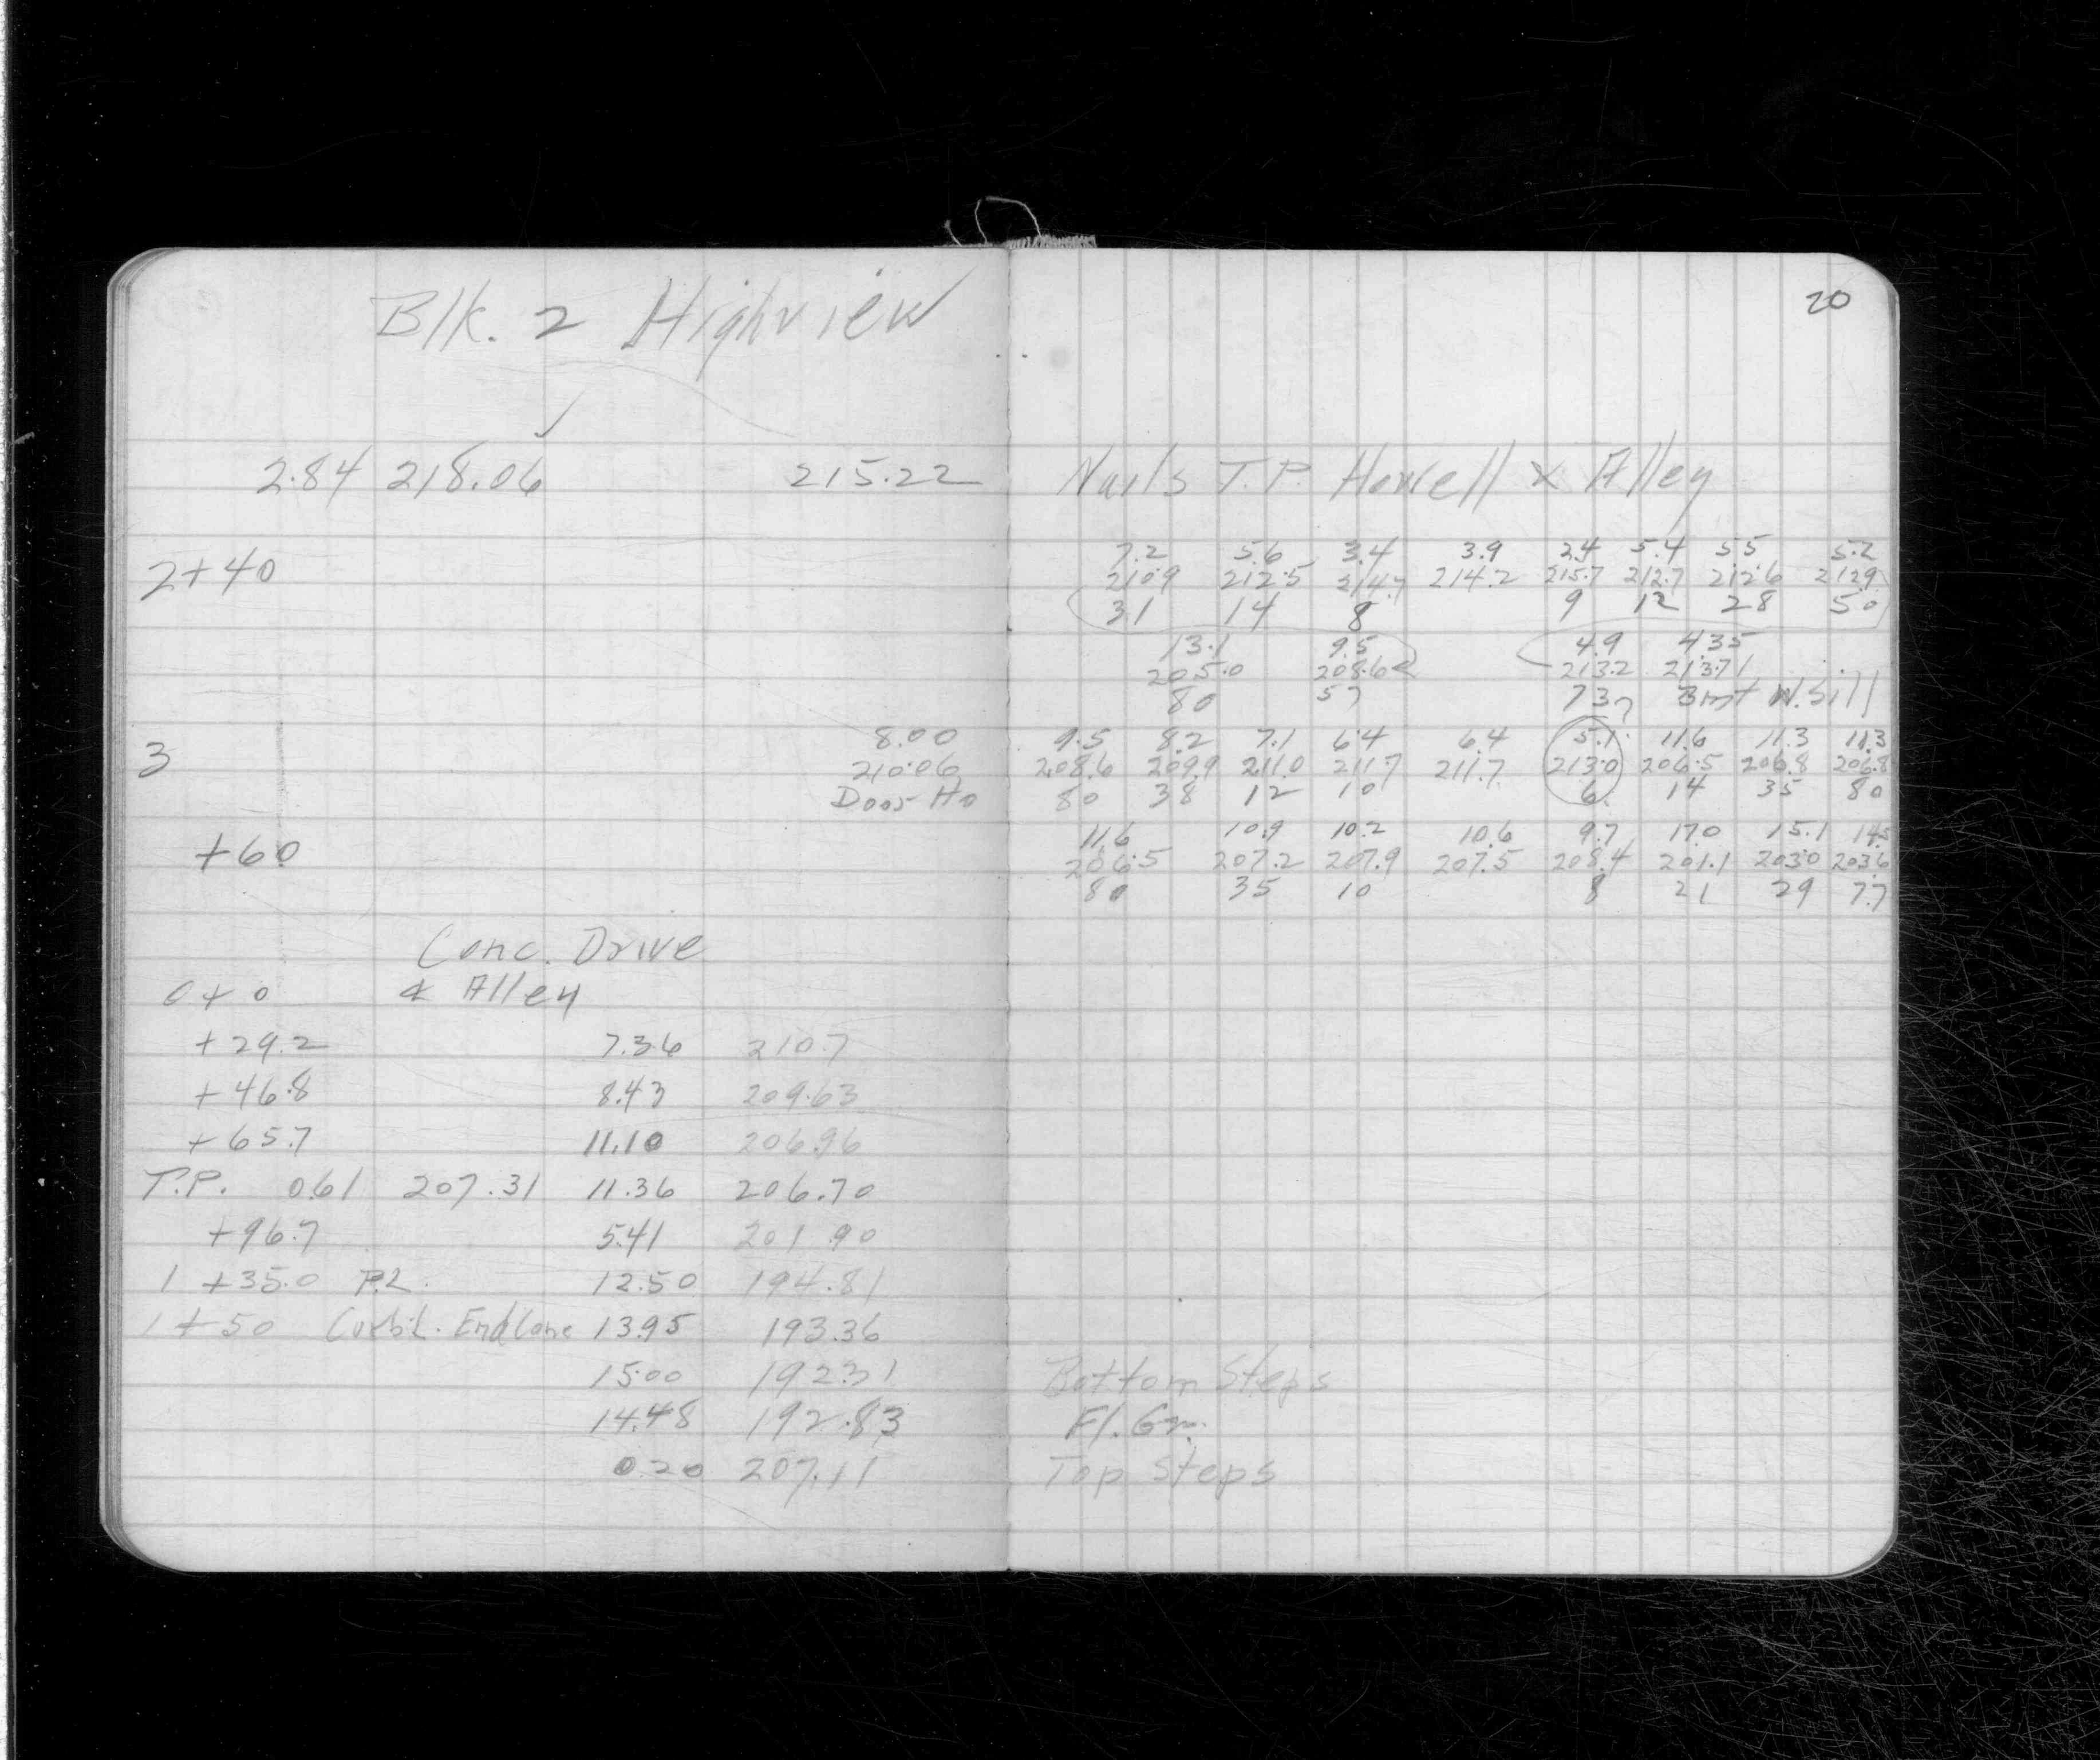 20
Blk. 2 Highview
2.84 218.06 ✓ 215.22 Nails T.P. Howell x Alley
7.2 5.6 3.4 3.9 2.4 5.4 5.5 5.2
2+40 210.9 212.5 214.7 214.2 215.7 212.7 212.6 212.9
31 14 8 9 12 28 50
13.1 9.5 4.9 4.35
205.0 208.6 213.2 213.71
80 57 73 Bmt W. Sill
8.00 9.5 8.2 7.1 6.4 6.4 5.1 11.6 11.3 11.3
3 210.06 208.6 209.9 211.0 211.7 211.7 213.0 206.5 206.8 206.8
Door Ho 80 38 12 10 6 14 35 80
11.6 10.9 10.2 10.6 9.7 17.0 15.1 14.5
+60 206.5 207.2 207.9 207.5 208.4 201.1 203.0 203.6
80 35 10 8 21 29 77
Conc. Drive
0+0 & Alley
+29.2 7.36 210.7
+46.8 8.43 209.63
+65.7 11.10 206.96
T.P. 0.61 207.31 11.36 206.70
+96.7 5.41 201.90
1+35.0 P.L. 12.50 194.81
1+50 Curb L. End Conc 13.95 193.36
15.00 192.31 Bottom Steps
14.48 192.83 Fl. Gar.
0.20 207.11 Top Steps